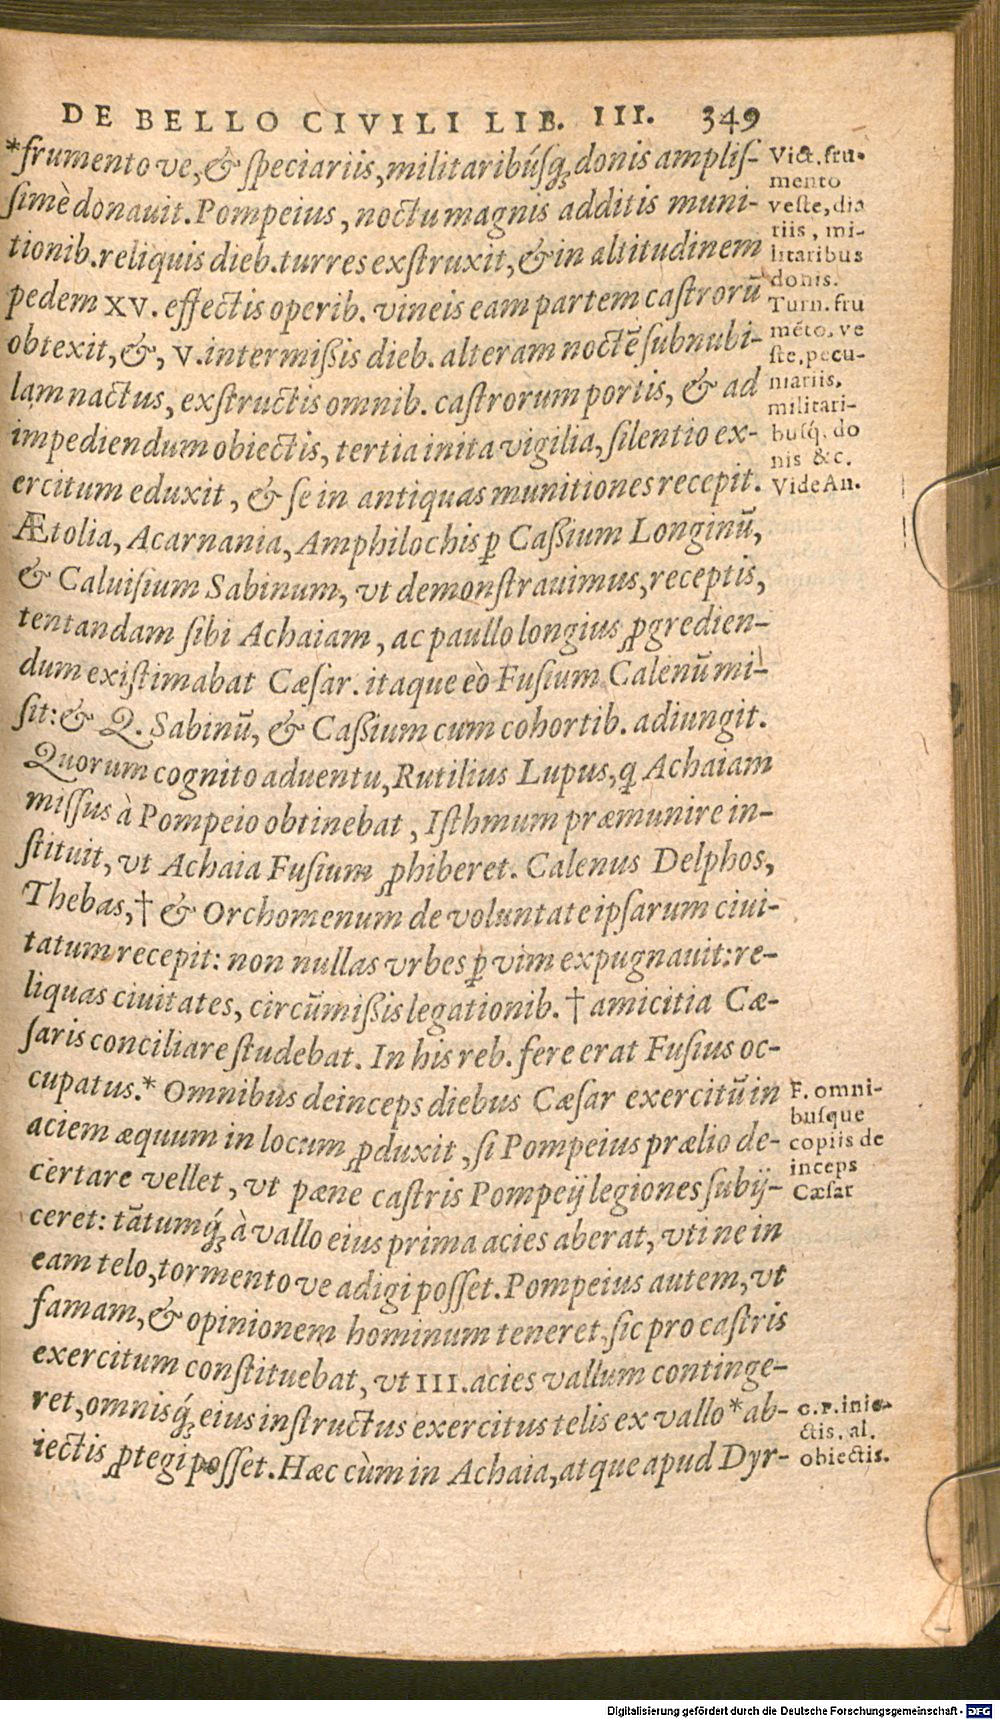 DE BELLO CIVILI LIB. III. 349
*frumento ve, & ſpeciariis, militaribúsq́ꝫ donis ampliſ-
ſimè donauit. Pompeius, noctu magnis additis muni-
tionib. reliquis dieb. turres exſtruxit, & in altitudinem
pedem XV. effectis operib. vineis eam partem caſtrorū
obtexit, &, V. intermiſsis dieb. alteram noctē ſubnubi-
lam nactus, exſtructis omnib. caſtrorum portis, & ad
impediendum obiectis, tertia inita vigilia, ſilentio ex-
ercitum eduxit, & ſe in antiquas munitiones recepit.
Ætolia, Acarnania, Amphilochis ꝑ Caſsium Longinū,
& Caluiſium Sabinum, vt demonſtrauimus, receptis,
tentandam ſibi Achaiam, ac paullo longius ꝓgredien-
dum exiſtimabat Cæſar. itaque eò Fuſium Calenū mi-
ſit: & Q. Sabinū, & Caſsium cum cohortib. adiungit.
Quorum cognito aduentu, Rutilius Lupus, q̨ Achaiam
miſſus à Pompeio obtinebat, Iſthmum præmunire in-
ſtituit, vt Achaia Fuſium ꝓhiberet. Calenus Delphos,
Thebas, † & Orchomenum de voluntate ipſarum ciui-
tatum recepit: non nullas vrbes ꝑ vim expugnauit: re-
liquas ciuitates, circūmiſsis legationib. † amicitia Cæ-
ſaris conciliare ſtudebat. In his reb. fere erat Fuſius oc-
cupatus.* Omnibus deinceps diebus Cæſar exercitū in
aciem æquum in locum ꝓduxit, ſi Pompeius prælio de-
certare vellet, vt pæne caſtris Pompeÿ legiones ſubÿ-
ceret: tātumq́ꝫ à vallo eius prima acies aberat, vti ne in
eam telo, tormento ve adigi poſſet. Pompeius autem, vt
famam, & opinionem hominum teneret, ſic pro caſtris
exercitum conſtituebat, vt III. acies vallum continge-
ret, omnisq́ꝫ eius inſtructus exercitus telis ex vallo * ab-
iectis ꝓtegi poſſet. Hæc cùm in Achaia, atque apud Dyr-
Vict. fru-
mento
veſte, dia
riis, mi-
litaribus
donis.
Turn. fru
mēto, ve
ſte, pecu-
niariis,
militari-
buſq́. do
nis &c.
Vide An.
F. omni-
buſque
copiis de
inceps
Cæſar
C. P. inie-
ctis. al.
obiectis.
Digitalisierung gefördert durch die Deutsche Forschungsgemeinschaft - DFG